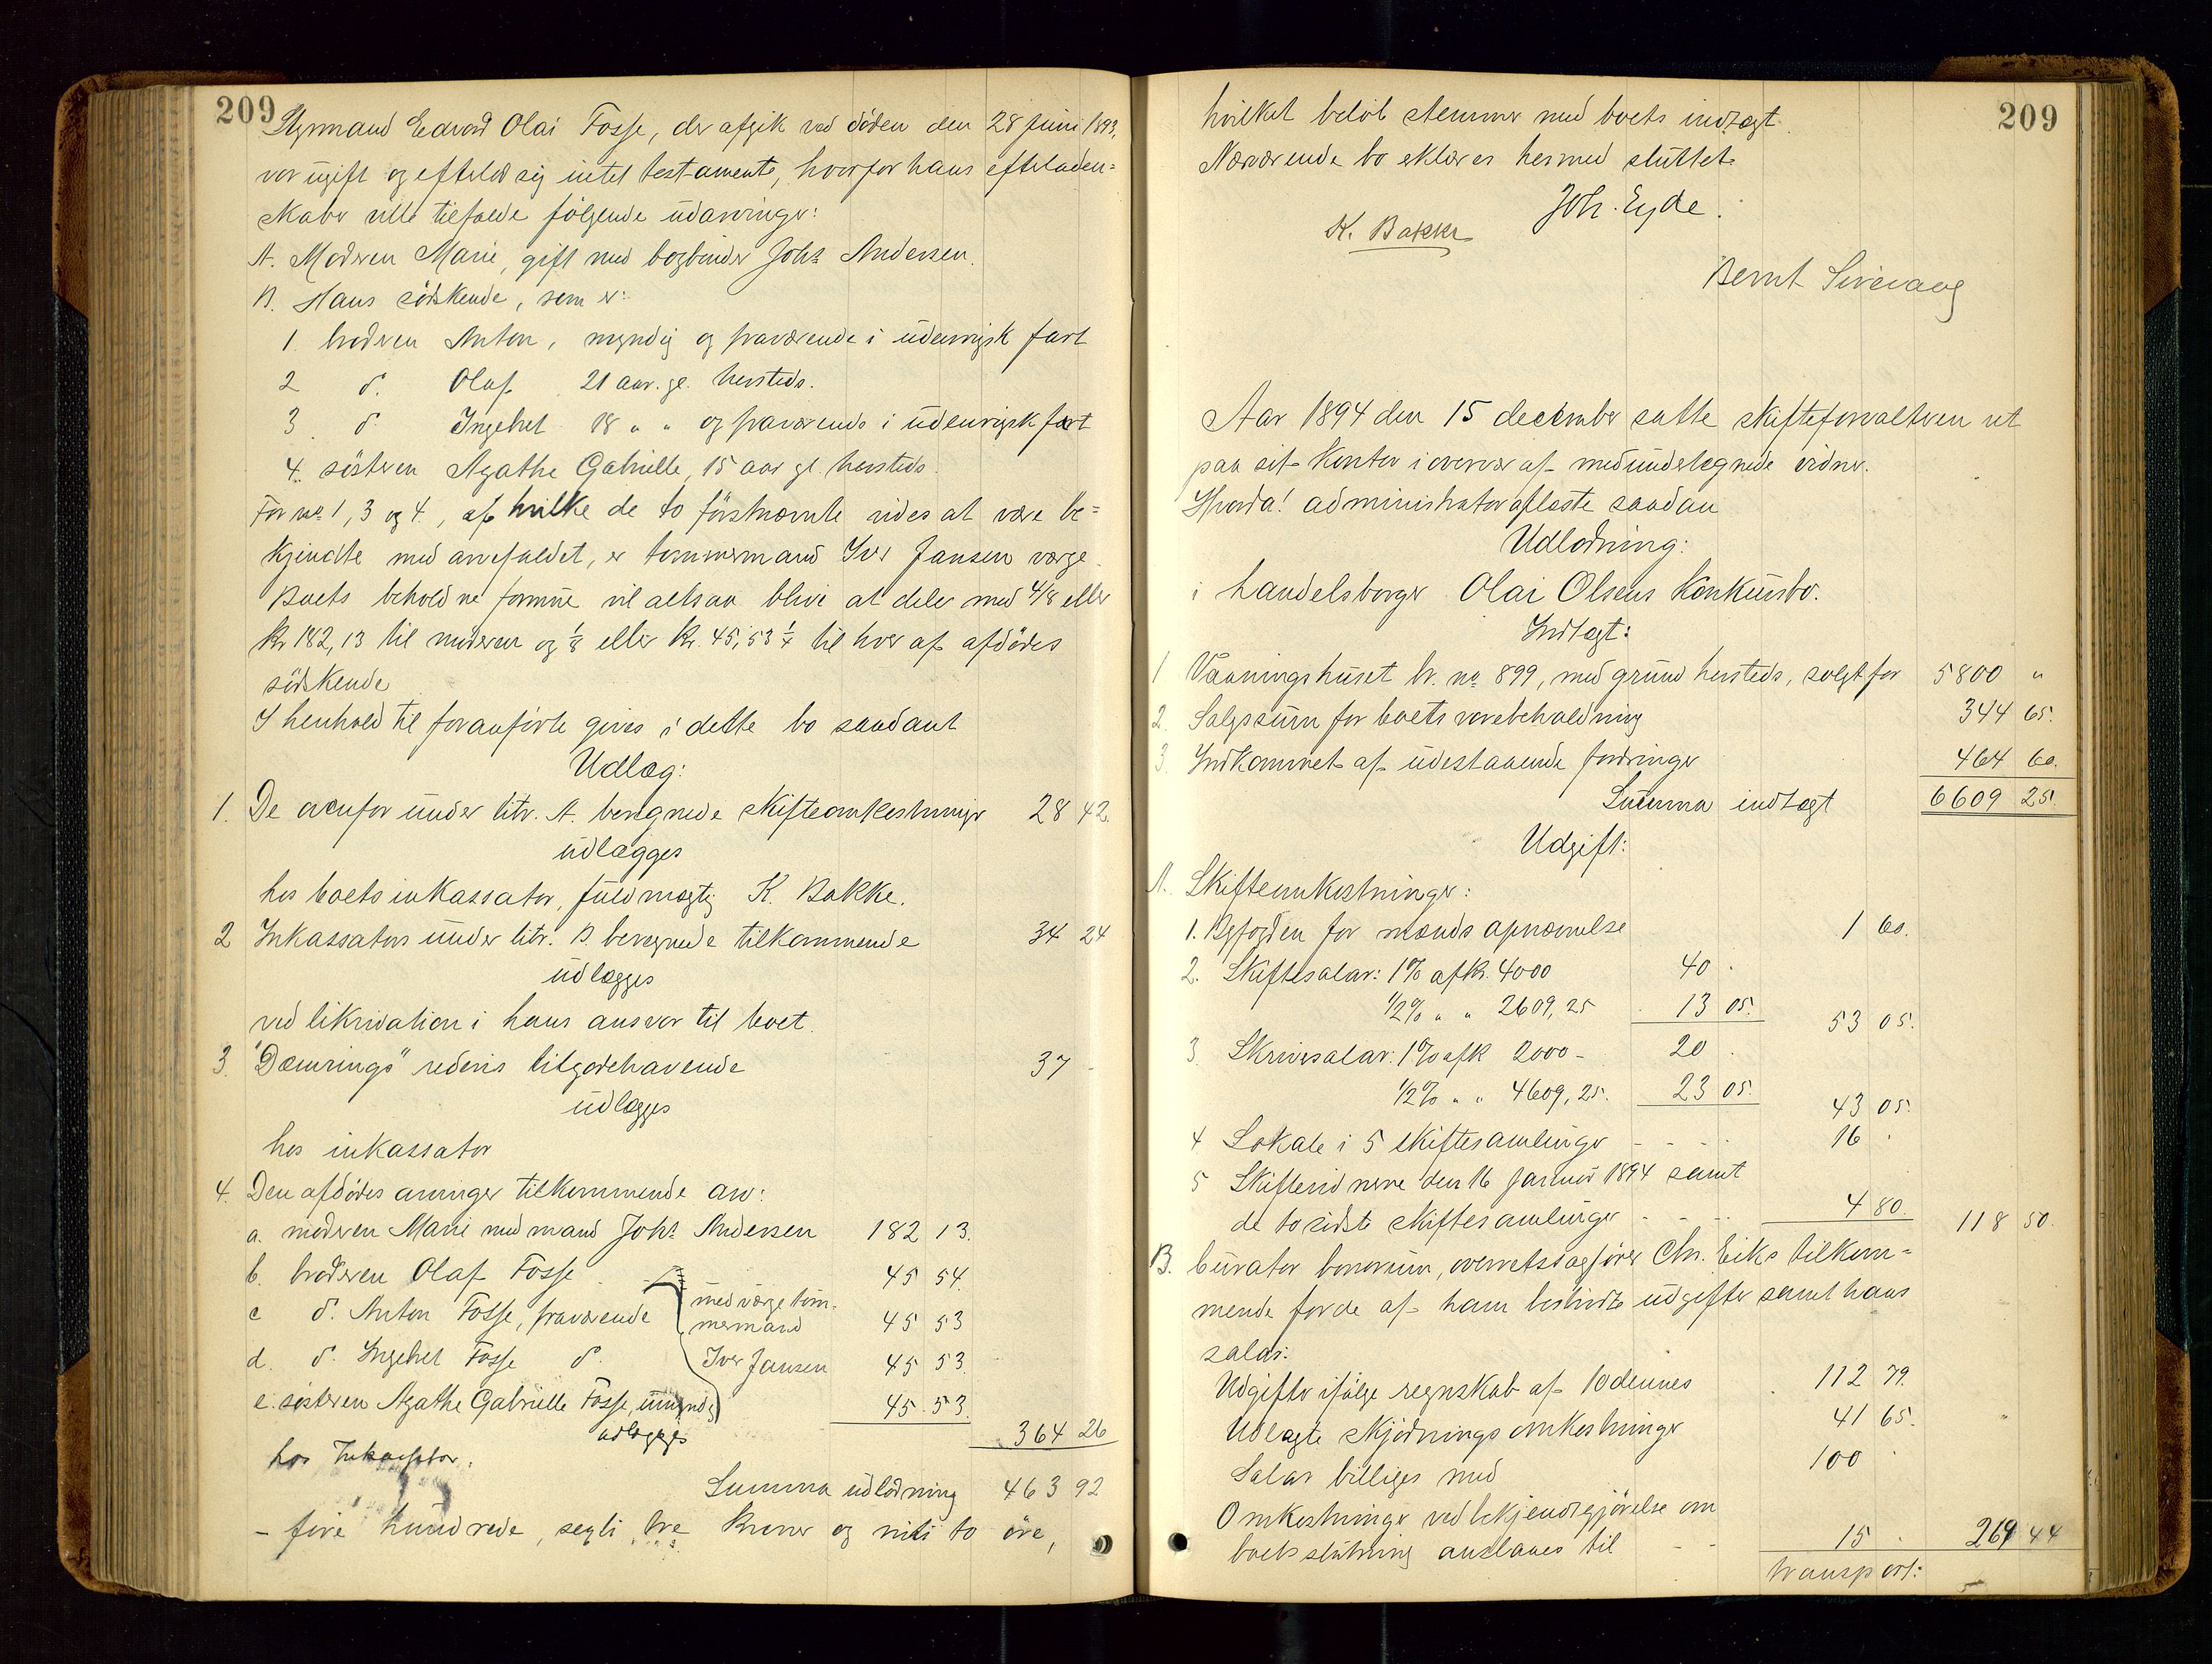 209
Styrmand Edvard Olai Fosse, der afgik ved döden den 28 juni 1893,
var ugift og efterlod sig intet testamente, hvorfor hans efterladen=
skaber ville tilfalde følgende udarvinger:
A. Moderen Marie, gift med bogbinder Johs Andersen.
B. Hans södskende, som er:
1. broderen Anton, myndig og fraværende i udenrigsk fart
2 d. Olaf 21 aar. gl. hersteds.
3. d Ingebret 18 " " og fraværende i udenrigsk fart
4. søsteren Agathe Gabrielle, 15 aar gl. hersteds.
For no 1, 3 og 4, af hvilke de to förstnævnte vides at være be=
kjendte med arvefaldet, er tømmermand Iver Jansen værge.
Boets beholdne formue vil altsaa blive at dele med 4/8 eller
Kr 182,13 til moderen og 1/8 eller Kr. 45,53 1/4 til hver af afdödes
södskende
I henhold til foranførte gives i dette bo saadant
Udlæg:
1. De ovenfor under litr. A. beregnede skifteomkostninger 28 42.
udlægges
hos boets inkassator, fuldmægtig K. Bakke.
2 Inkassators under litr. B. beregnede tilkommende 34 24
udlægges
ved likvidation i hans ansvar til boet.
3. "Dæmrings" rederis tilgodehavende 37 -
udlægges
hos inkassator
4. Den afdödes arvinger tilkommende arv:
a. moderen Marie med mand Johs Andersen 182 13.
b. broderen Olaf Fosse 45 54.
c d. Anton Fosse, fraværende med værge töm- 45 53
mermand
d. d. Ingebret Fosse d. Iver Jansen 45 53.
e. søsteren Agathe Gabrielle Fosse, umyndig 45 53.
udlægges 364 26
hos Inkassator.
Summa udlodning 463 92
- fire hundrede, segti tre kroner og nitti to øre,
209
hvilket beløb stemmer med boets indtægt.
Nærværende bo eklæres hermed sluttet.
Joh. Eyde.
K. Bakke
Bernt Sirevaag
Aar 1894 den 15 december satte skifteforvalteren ret
paa sit kontor i overvær af medundertegnede vidner.
Hvorda! administrator afleste saadan
Udlodning:
i handelsborger Olai Olsens Konkursbo.
Indtægt:
1 Vaaningshuset br. no 899, med grund hersteds, solgt for 5800 "
2. Salgssum for boets varebeholdning 344 65.
3. Indkommet af udestaaende fordringer 464 60.
Summa indtægt 6609 25.
Udgift:
A. Skifteomkostninger:
1. Byfogden for mænds opnævnelse 1 60.
2. Skiftesalar: 1% af Kr. 4000 40 .
1/2% " " 2609,25 13 05. 53 05.
3. Skriversalar: 1% af Kr 2000 - 20 .
1/2% " " 4609,25. 23 05. 43 05.
4 Lokale i 5 skiftesamlinger - - - - 16 .
5 Skiftevidnerne den 16 januar 1894 samt
de to sidste skiftesamlinger - - - 4 80. 118 50.
B. Curator bonorum, overretssagfører Chr. Eiks tilkom=
mende for de af ham bestridte udgifter samt hans
salar:
Udgifter ifølge regnskab af 10 dennes 112 79.
Udlagte skjødningsomkostninger 41 65.
Salar billiges med 100 .
Omkostninger ved bekjendtgjörelse om
boets slutning anslaaes til - - 15 . 269 44
transport: